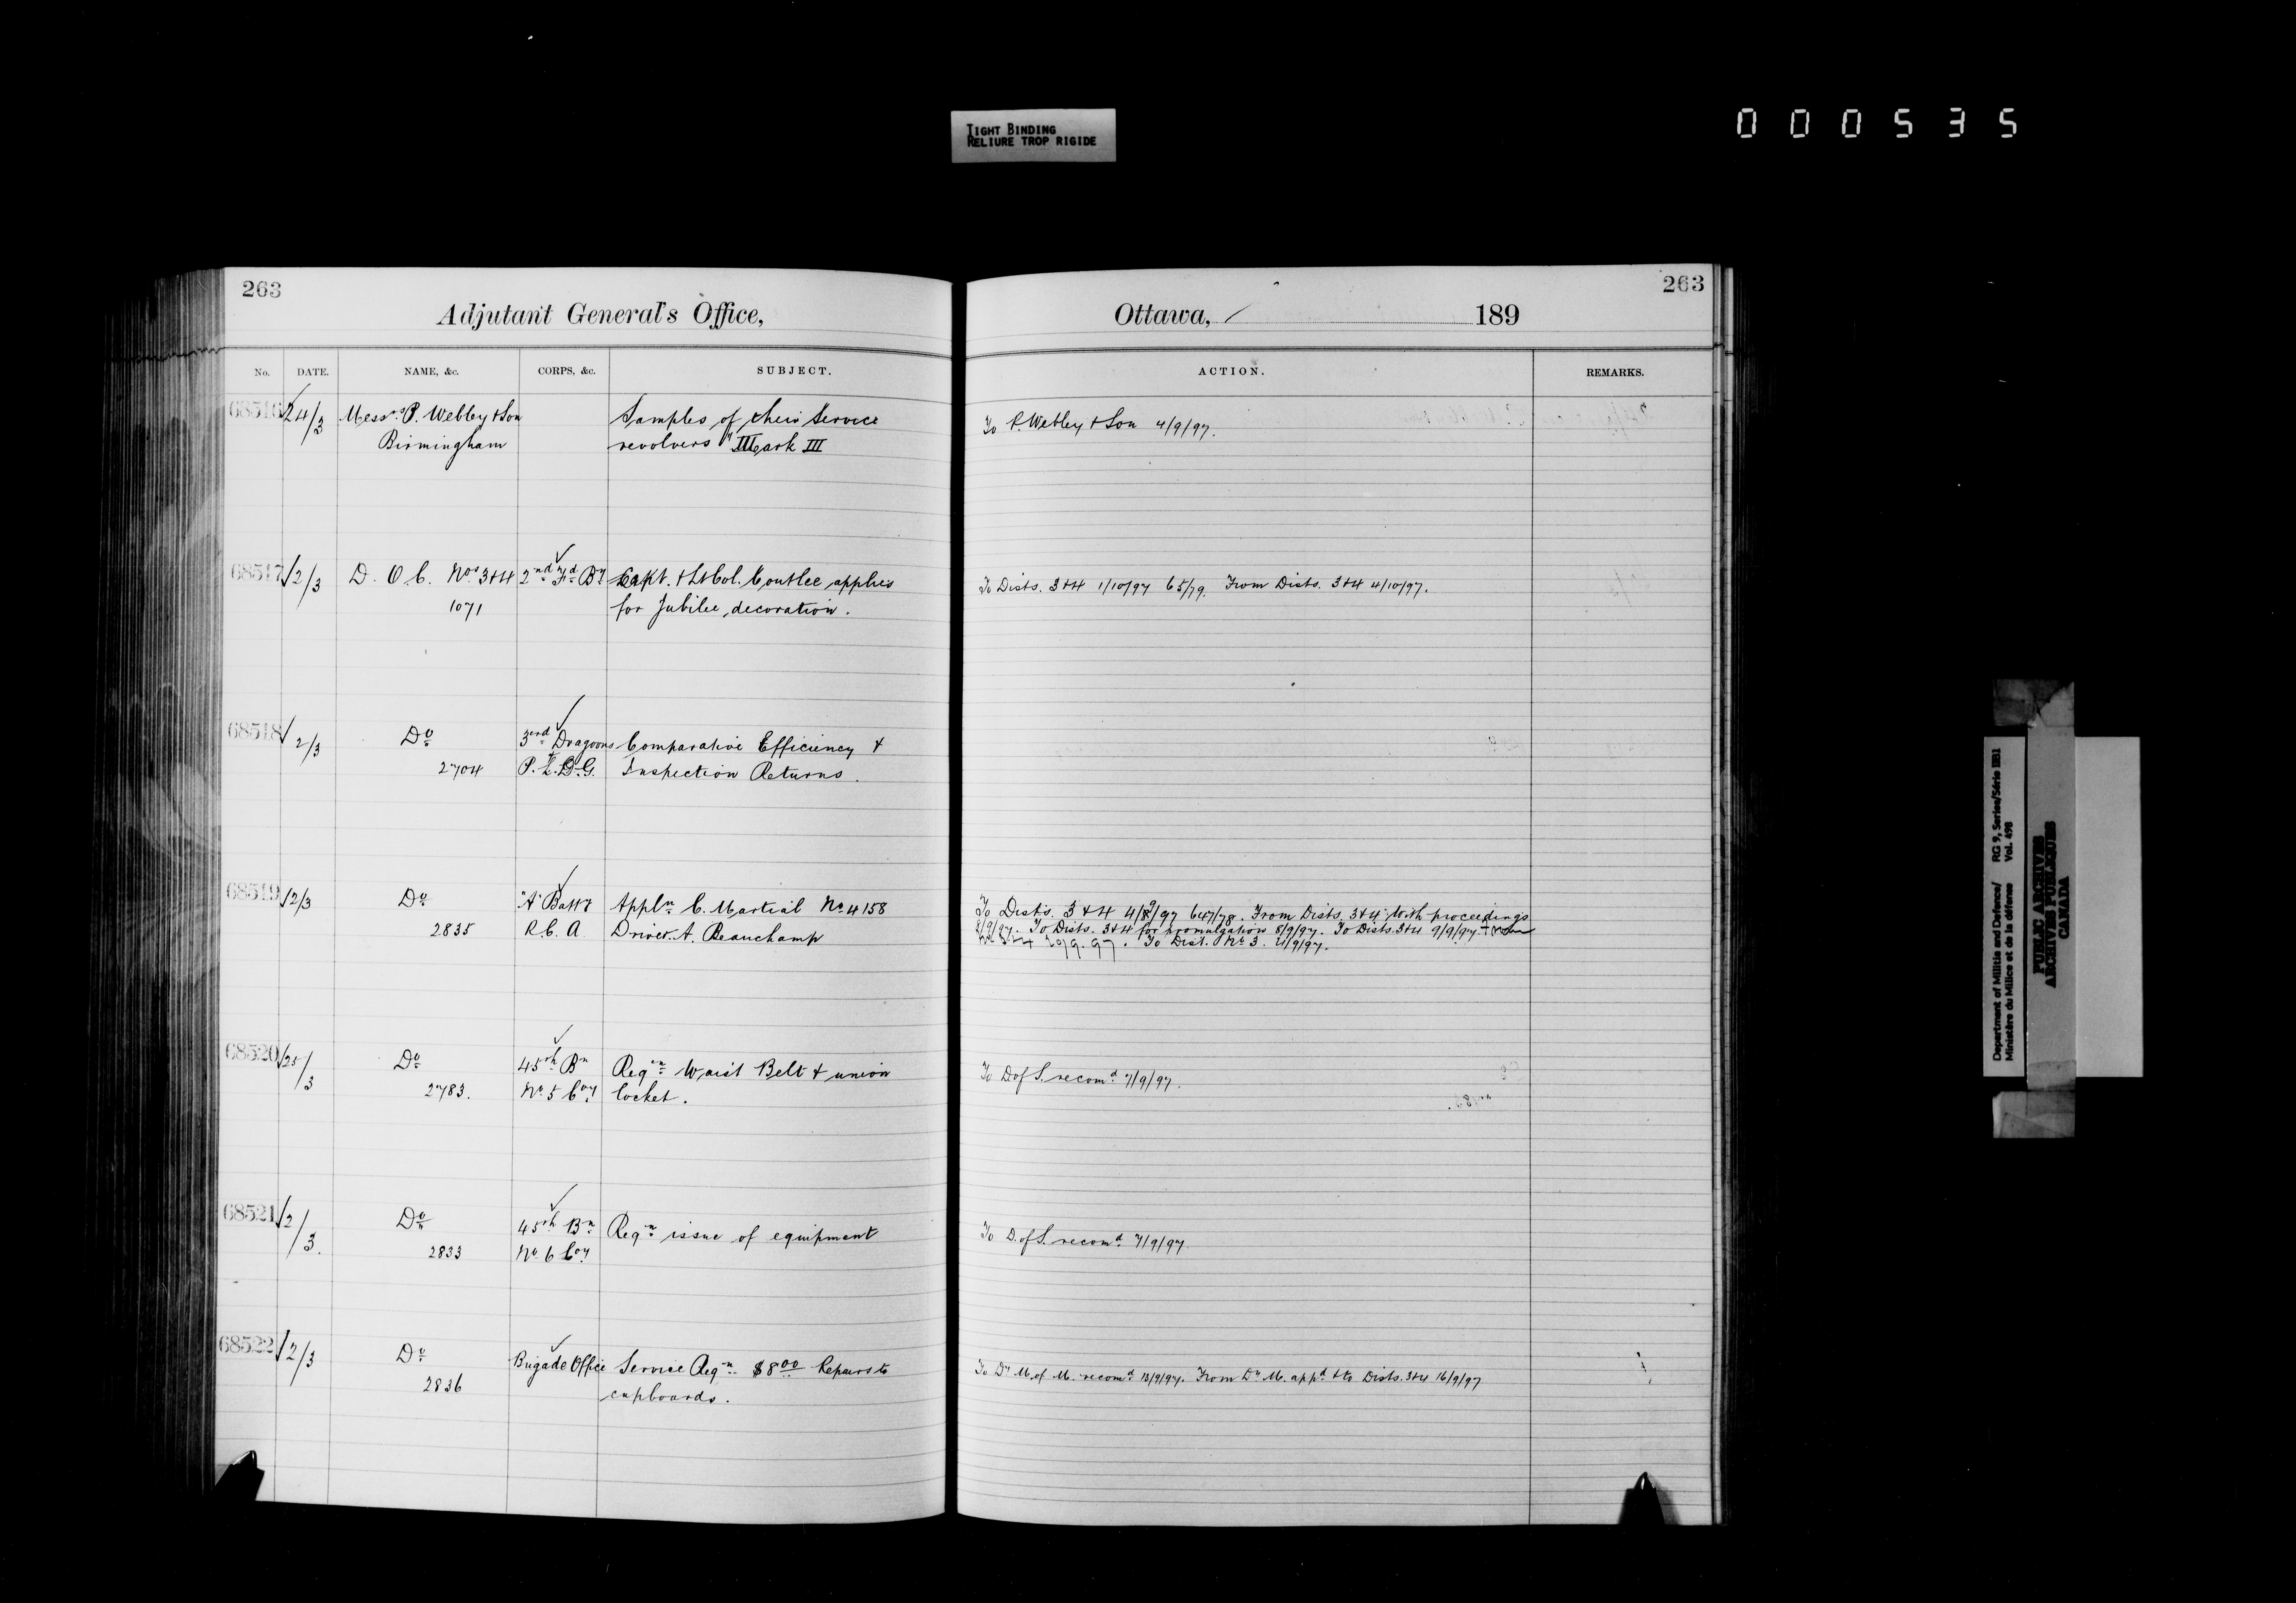 TIGHT BINDING
RELIURE TROP RIGIDE
000535
263
Adjutant General's Office,
No. DATE. NAME, &c. CORPS, &c. SUBJECT.
68516 24/3 Messrs. P. Webley & Son Samples of their Service
Birmingham revolvers "Mark III
68517 2/3 D. O. C. Nos 3&4 2nd Fd By Capt. & Lt Col. Coutlee applies
1071 for Jubilee decoration.
68518 2/3 Do 3rd Dragoons Comparative Efficiency &
2704 P. L. D. G. Inspection Returns.
68519 2/3 Do "A" Batty Appln C. Martial No 4158
2835 R.C.A. Driver A. Beauchamp
68520 25/3 Do 45th Bn Reqn Waist Belt & union
2783. No 5 Coy locket.
68521 2/3. Do 45th Bn Reqn issue of equipment
2833 No 6 Coy
68522 2/3 Do Brigade Office Service Reqn $8.00 Repairs to
2836 cupboards.
263
Ottawa, 189
ACTION. REMARKS.
To P. Webley & Son 4/9/97.
To Dists. 3&4 1/10/97 65/79. From Dists. 3&4 4/10/97.
To Dists. 3&4 4/9/97 647/78. From Dists. 3&4 with proceedings
8/9/97. To Dists. 3&4 for promulgation 8/9/97. To Dists. 3&4 9/9/97
To Dist. No 3.
To D of S. recomd 7/9/97.
To D. of S. recomd 7/9/97
To Dy M. of M. recomd 13/9/97. From Dy M. appd & to Dists. 3&4 16/9/97
Department of Militia and Defence/ RG 9, Series/Série IIB1
Ministère du Milice et de la défense Vol. 498
PUBLIC ARCHIVES
ARCHIVES PUBLIQUES
CANADA